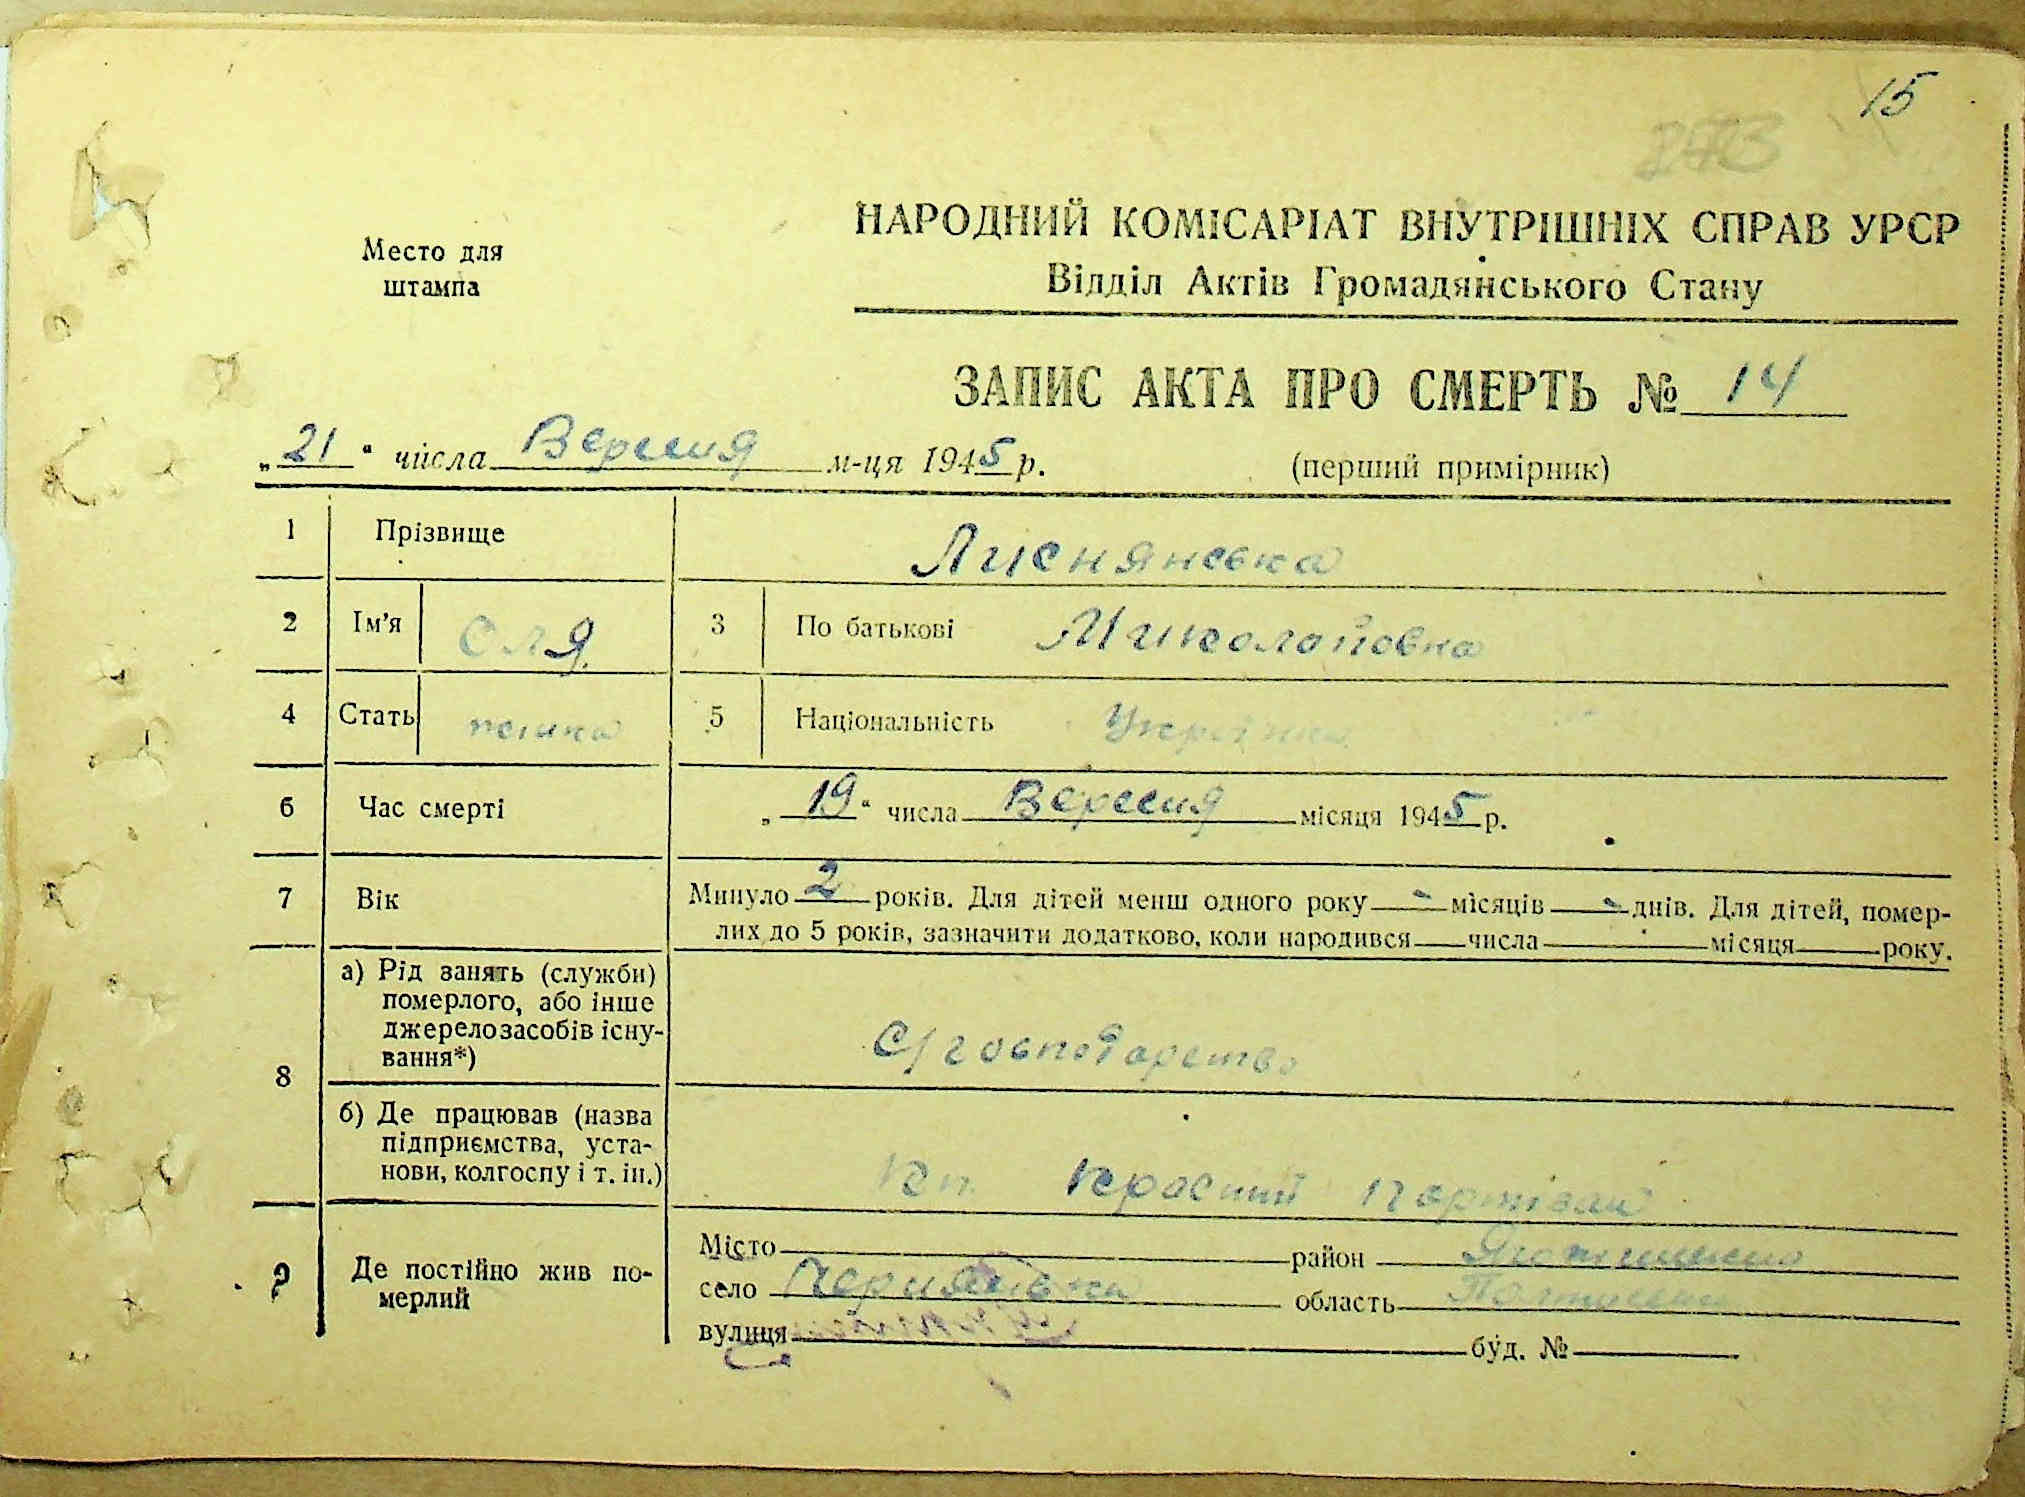 15
НАРОДНИЙ КОМІСАРІАТ ВНУТРІШНІХ СПРАВ УРСР
Відділ Актів Громадянського Стану
Место для
штампа
ЗАПИС АКТА ПРО СМЕРТЬ № 14
„21" числа Вересня м-ця 1945 р.
(перший примірник)
1 Прізвище Лиснянська
2 Ім'я Оля 3 По батькові Миколаївна
4 Стать жінка 5 Національність Українка
6 Час смерті „19" числа Вересня місяця 1945 р.
7 Вік Минуло 2 років. Для дітей менш одного року - місяців - днів. Для дітей, помер-
лих до 5 років, зазначити додатково, коли народився числа місяця року.
8 а) Рід занять (служби)
померлого, або інше
джерело засобів існу-
вання*)
С/господарство
б) Де працював (назва
підприємства, уста-
нови, колгоспу і т. ін.)
Красний Партізан
9 Де постійно жив по-
мерлий
Місто район
село область
вулиця буд. №